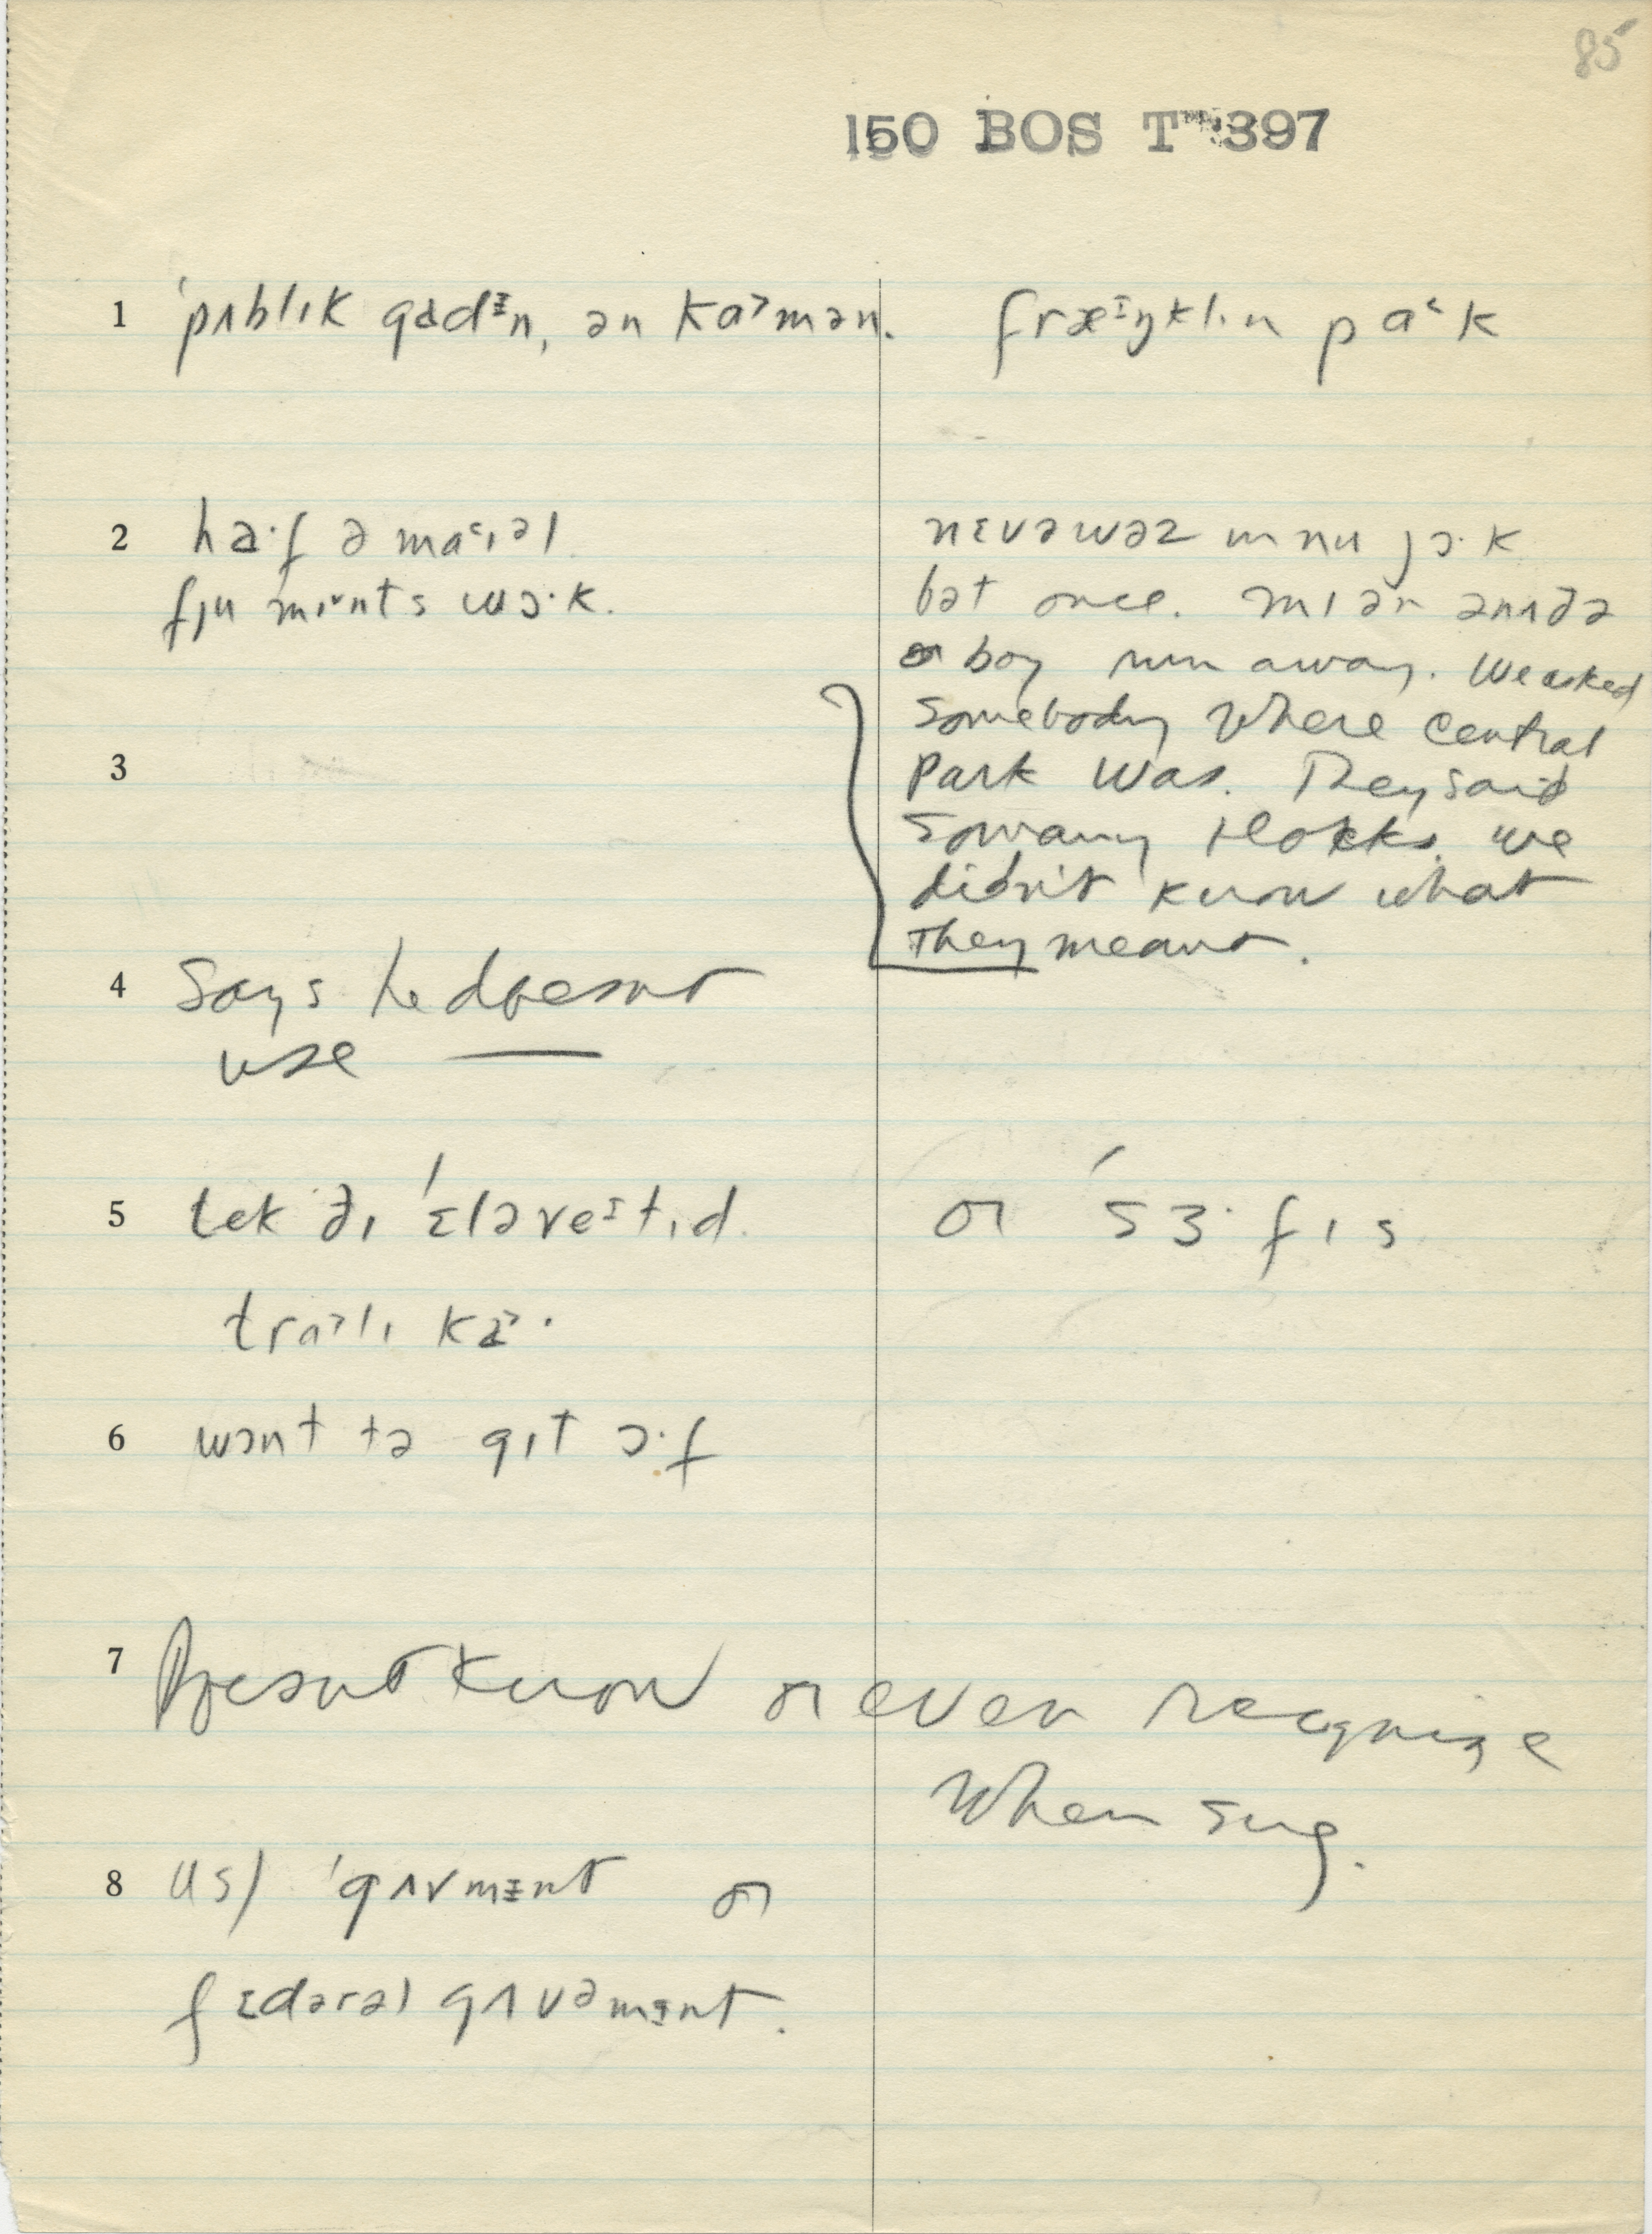 85
150 BOS T 397
1 ˈpʌblɪk gadᵻn, ən kɑ˃mən. fræᶦŋklɪn pɑ˂k
2 ha·f ə mɑ˂ɪəl
fju mɪnts wɔ·k.
nɛvə wəz in nu jɔ·k
bət once. mɪ ən ənʌðə
boy run away. We asked
somebody where Central
3 Park was. They said
so many blocks. we
didn't know what
they meant.
4 Says he doesnt
use —
5 tek ðɪ ˈɛləveᶦtɪd or ˈsɜ·fɪs
trɑ˃lɪ ka˃·
6 wɔnt tə gɪt ɔ·f
7 Doesnt know or even recognize
when sug.
8 US) ˈgʌvmᵻnt or
fɛdərəl gʌvəmənt.